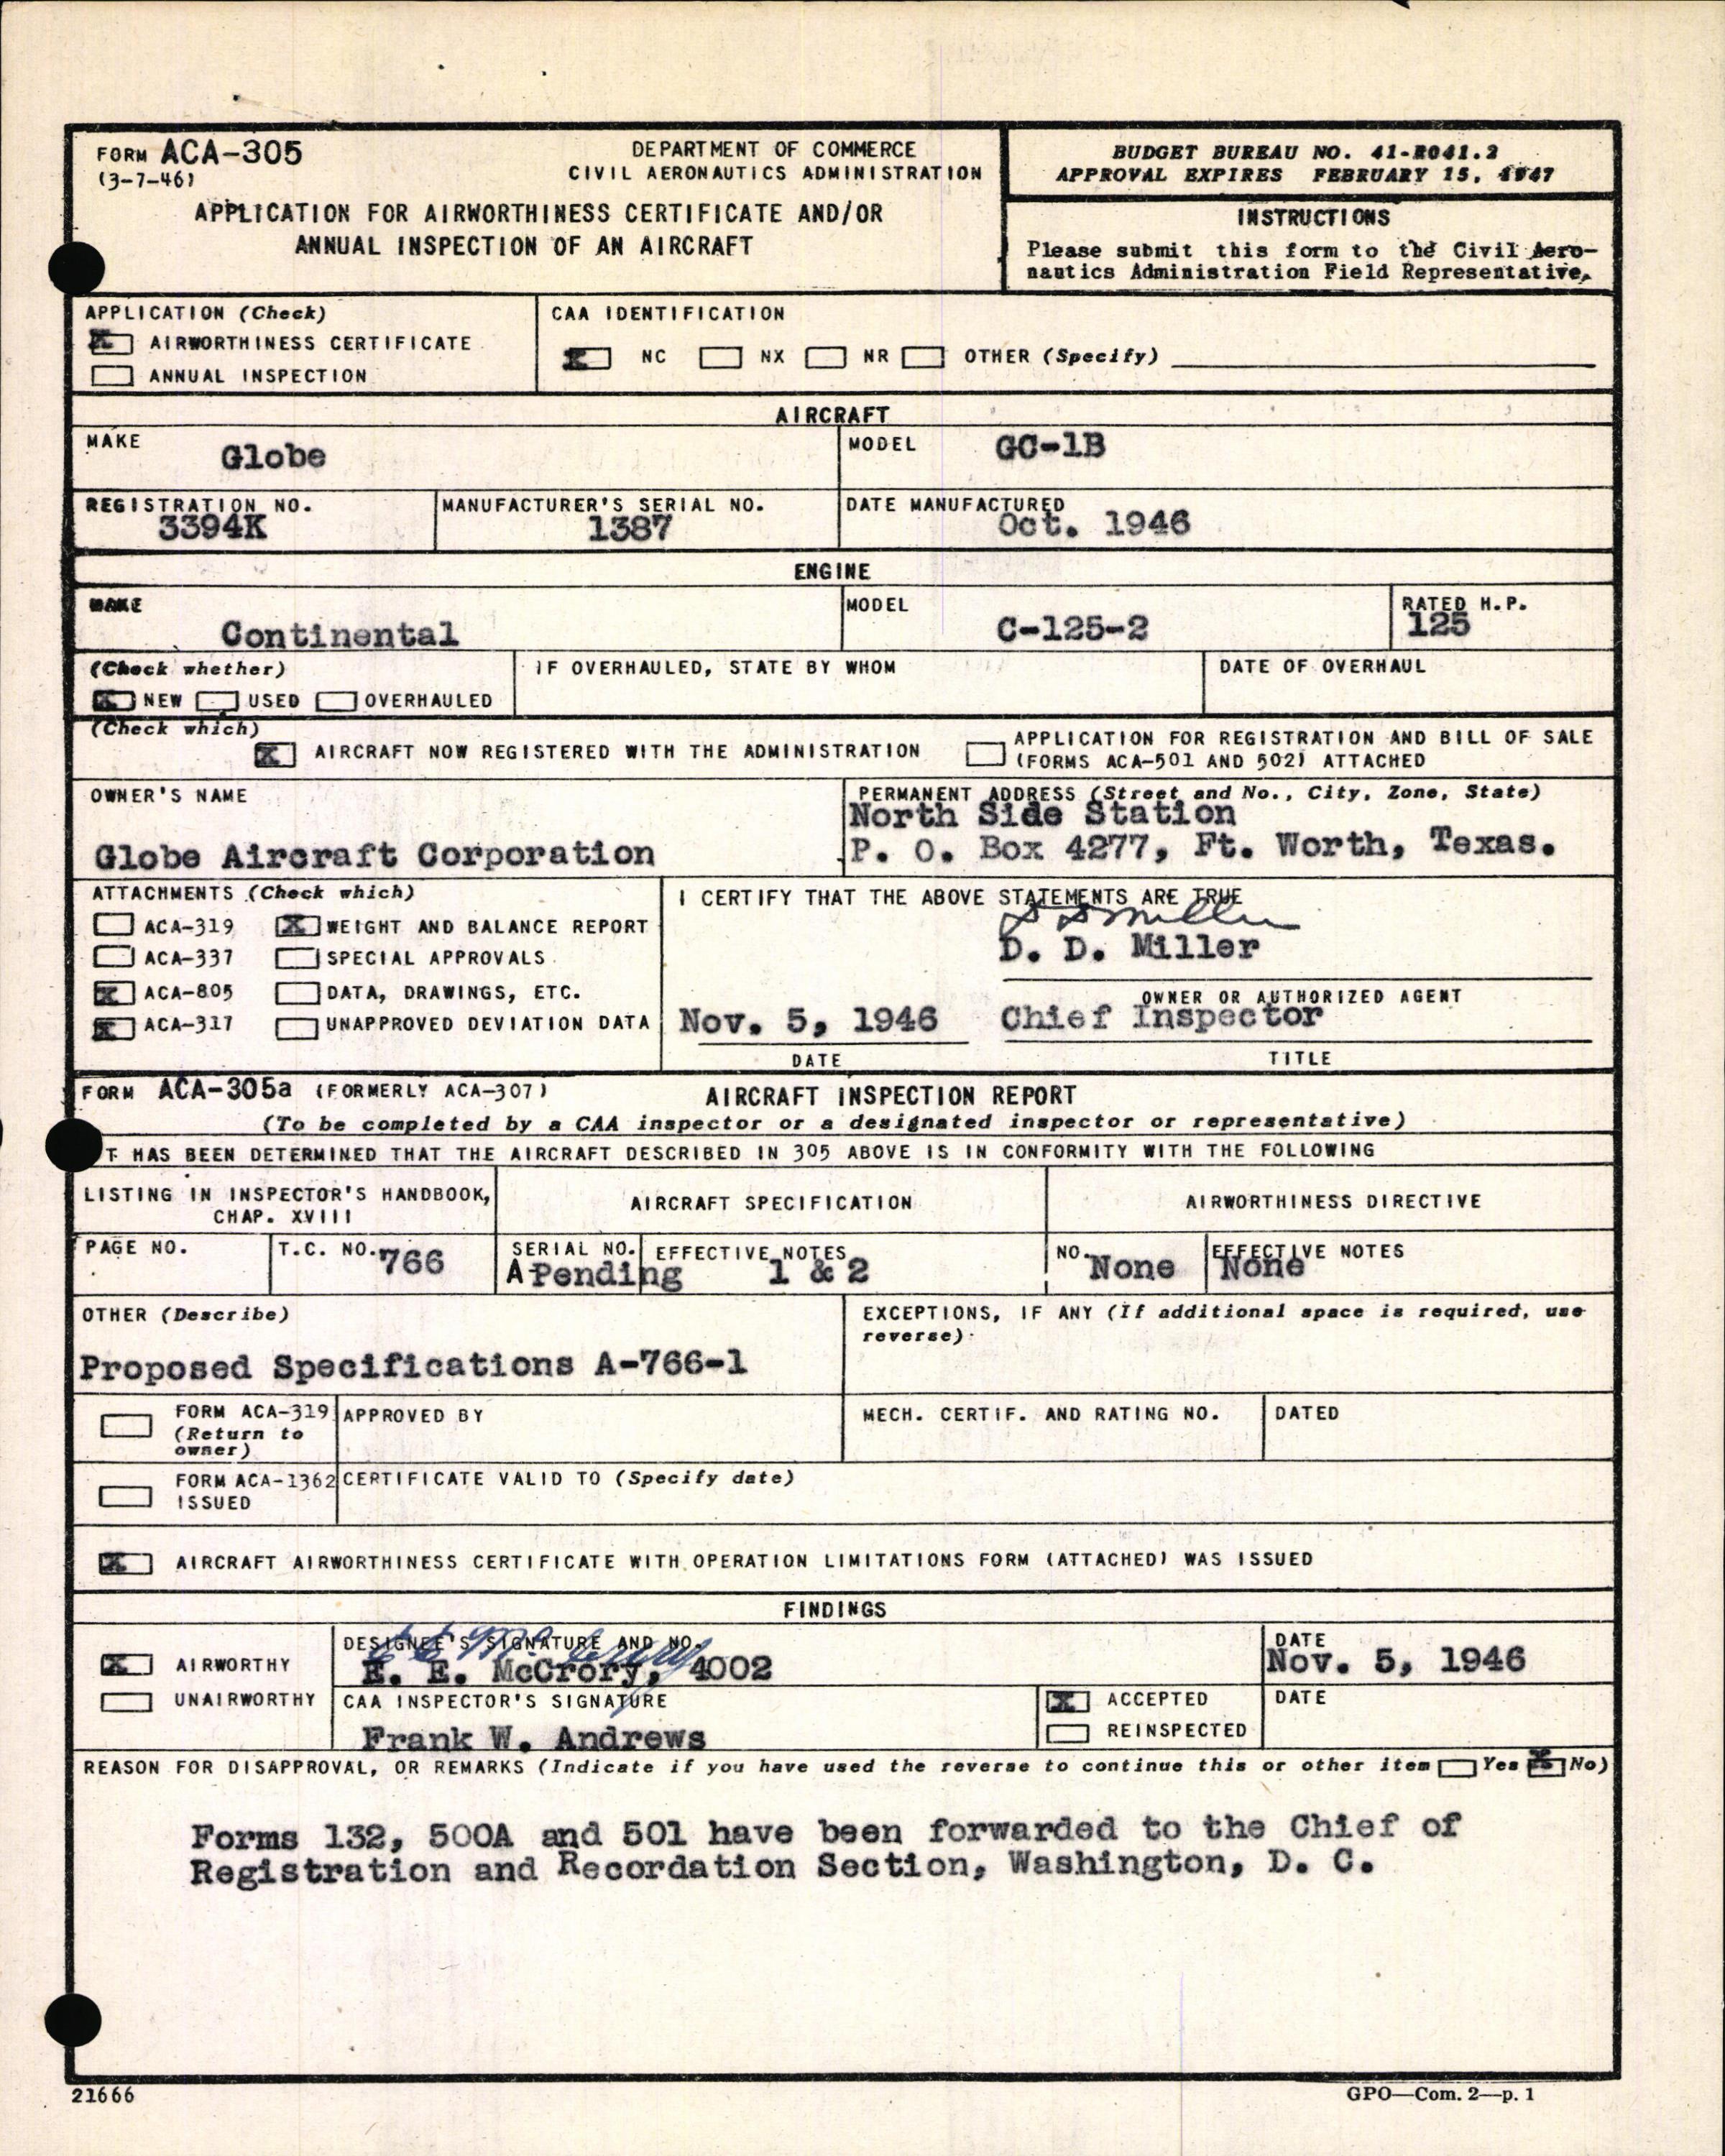 FORM ACA-305
(3-7-46)
DEPARTMENT OF COMMERCE
CIVIL AERONAUTICS ADMINISTRATION
APPLICATION FOR AIRWORTHINESS CERTIFICATE AND/OR
ANNUAL INSPECTION OF AN AIRCRAFT
BUDGET BUREAU NO. 41-R041.2
APPROVAL EXPIRES FEBRUARY 15, 1947
INSTRUCTIONS
Please submit this form to the Civil Aero-
nautics Administration Field Representative.
APPLICATION (Check)
X AIRWORTHINESS CERTIFICATE
ANNUAL INSPECTION
CAA IDENTIFICATION
X NC NX NR OTHER (Specify)
AIRCRAFT
MAKE
Globe
MODEL
GC-1B
REGISTRATION NO.
3394K
MANUFACTURER'S SERIAL NO.
1387
DATE MANUFACTURED
Oct. 1946
ENGINE
MAKE
Continental
MODEL
C-125-2
RATED H.P.
125
(Check whether)
X NEW USED OVERHAULED
IF OVERHAULED, STATE BY WHOM
DATE OF OVERHAUL
(Check which)
X AIRCRAFT NOW REGISTERED WITH THE ADMINISTRATION
APPLICATION FOR REGISTRATION AND BILL OF SALE
(FORMS ACA-501 AND 502) ATTACHED
OWNER'S NAME
Globe Aircraft Corporation
PERMANENT ADDRESS (Street and No., City, Zone, State)
North Side Station
P. O. Box 4277, Ft. Worth, Texas.
ATTACHMENTS (Check which)
ACA-319 X WEIGHT AND BALANCE REPORT
ACA-337 SPECIAL APPROVALS
X ACA-805 DATA, DRAWINGS, ETC.
X ACA-317 UNAPPROVED DEVIATION DATA
I CERTIFY THAT THE ABOVE STATEMENTS ARE TRUE
D D Miller
D. D. Miller
OWNER OR AUTHORIZED AGENT
Nov. 5, 1946 Chief Inspector
DATE TITLE
FORM ACA-305a (FORMERLY ACA-307) AIRCRAFT INSPECTION REPORT
(To be completed by a CAA inspector or a designated inspector or representative)
T HAS BEEN DETERMINED THAT THE AIRCRAFT DESCRIBED IN 305 ABOVE IS IN CONFORMITY WITH THE FOLLOWING
LISTING IN INSPECTOR'S HANDBOOK,
CHAP. XVIII
AIRCRAFT SPECIFICATION
AIRWORTHINESS DIRECTIVE
PAGE NO.
T.C. NO. 766
SERIAL NO.
A Pending
EFFECTIVE NOTES
1 & 2
NO. None
EFFECTIVE NOTES
None
OTHER (Describe)
Proposed Specifications A-766-1
EXCEPTIONS, IF ANY (If additional space is required, use
reverse)
FORM ACA-319
(Return to
owner)
APPROVED BY
MECH. CERTIF. AND RATING NO.
DATED
FORM ACA-1362
ISSUED
CERTIFICATE VALID TO (Specify date)
X AIRCRAFT AIRWORTHINESS CERTIFICATE WITH OPERATION LIMITATIONS FORM (ATTACHED) WAS ISSUED
FINDINGS
X AIRWORTHY
UNAIRWORTHY
DESIGNEE'S SIGNATURE AND NO.
E E McCrory
E. E. McCrory, 4002
DATE
Nov. 5, 1946
CAA INSPECTOR'S SIGNATURE
Frank W. Andrews
X ACCEPTED
REINSPECTED
DATE
REASON FOR DISAPPROVAL, OR REMARKS (Indicate if you have used the reverse to continue this or other item Yes X No)
Forms 132, 500A and 501 have been forwarded to the Chief of
Registration and Recordation Section, Washington, D. C.
21666
GPO—Com. 2—p. 1